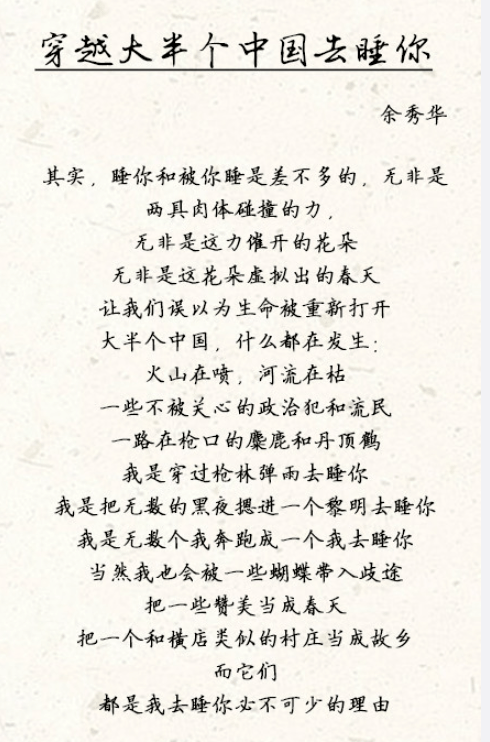 穿越大半个中国去睡你
余秀华
其实，睡你和被你睡是差不多的，无非是
两具肉体碰撞的力，
无非是这力催开的花朵
无非是这花朵虚拟出的春天
让我们误以为生命被重新打开
大半个中国，什么都在发生：
火山在喷，河流在枯
一些不被关心的政治犯和流民
一路在枪口的麋鹿和丹顶鹤
我是穿过枪林弹雨去睡你
我是把无数的黑夜摁进一个黎明去睡你
我是无数个我奔跑成一个我去睡你
当然我也会被一些蝴蝶带入歧途
把一些赞美当成春天
把一个和横店类似的村庄当成故乡
而它们
都是我去睡你必不可少的理由